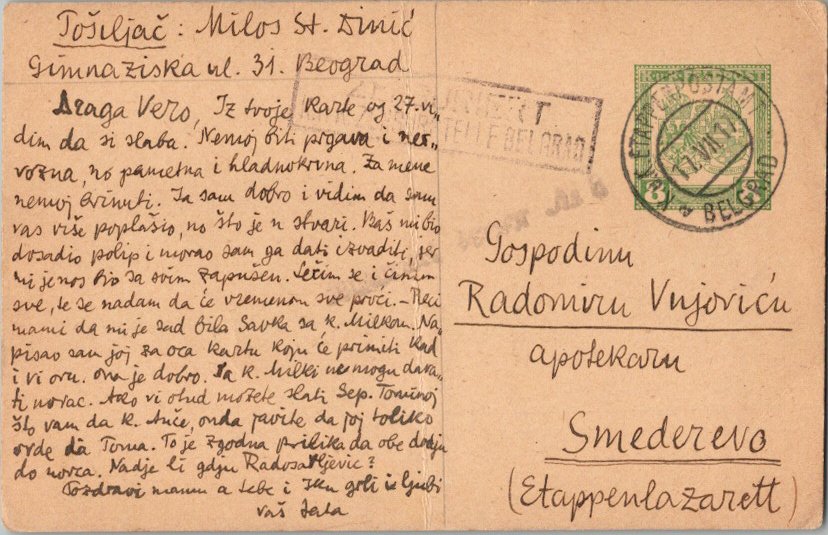 Pošiljač: Milos St. Dinić
Gimnaziska ul. 31. Beograd
Draga Vero, Iz tvoje karte og 27. vi-
dim da si slaba. Nemoj biti prgava i ner-
vozna, no pametna i hladnokrvna. Za mene
nemoj brinuti. Ja sam dobro i vidim da sam
vas više poplašio, no što je u stvari. Baš mi bio
dosadio polip i morao sam ga dati izvaditi, jer
mi je nos bio sa svim zapušen. Lečim se i činim
sve, te se nadam da će vremenom sve proći. – Reci
mami da mi je sad bila Savka sa k. Milkom. Na-
pisao sam joj za oca kartu koju će primiti kad
i vi ovu. Ona je dobro. Ja k. Milki ne mogu dava-
ti novac. Ako vi otud možete slati Sep. Tominoj
što vam da k. Anče, onda javite da joj toliko
ovde da Toma. To je zgodna prilika da obe dodju
do novca. Nadje li gdju Radosavljević?
Pozdravi mamu a tebe i grli i ljubi
vaš
ZENSURIERT
BELGRAD
K.u.K. ETAPPENPOSTAMT
17.VII.17
BELGRAD
Gospodinu
Radomiru Vujoviću
apotekaru
Smederevo
(Etappenlazarett)